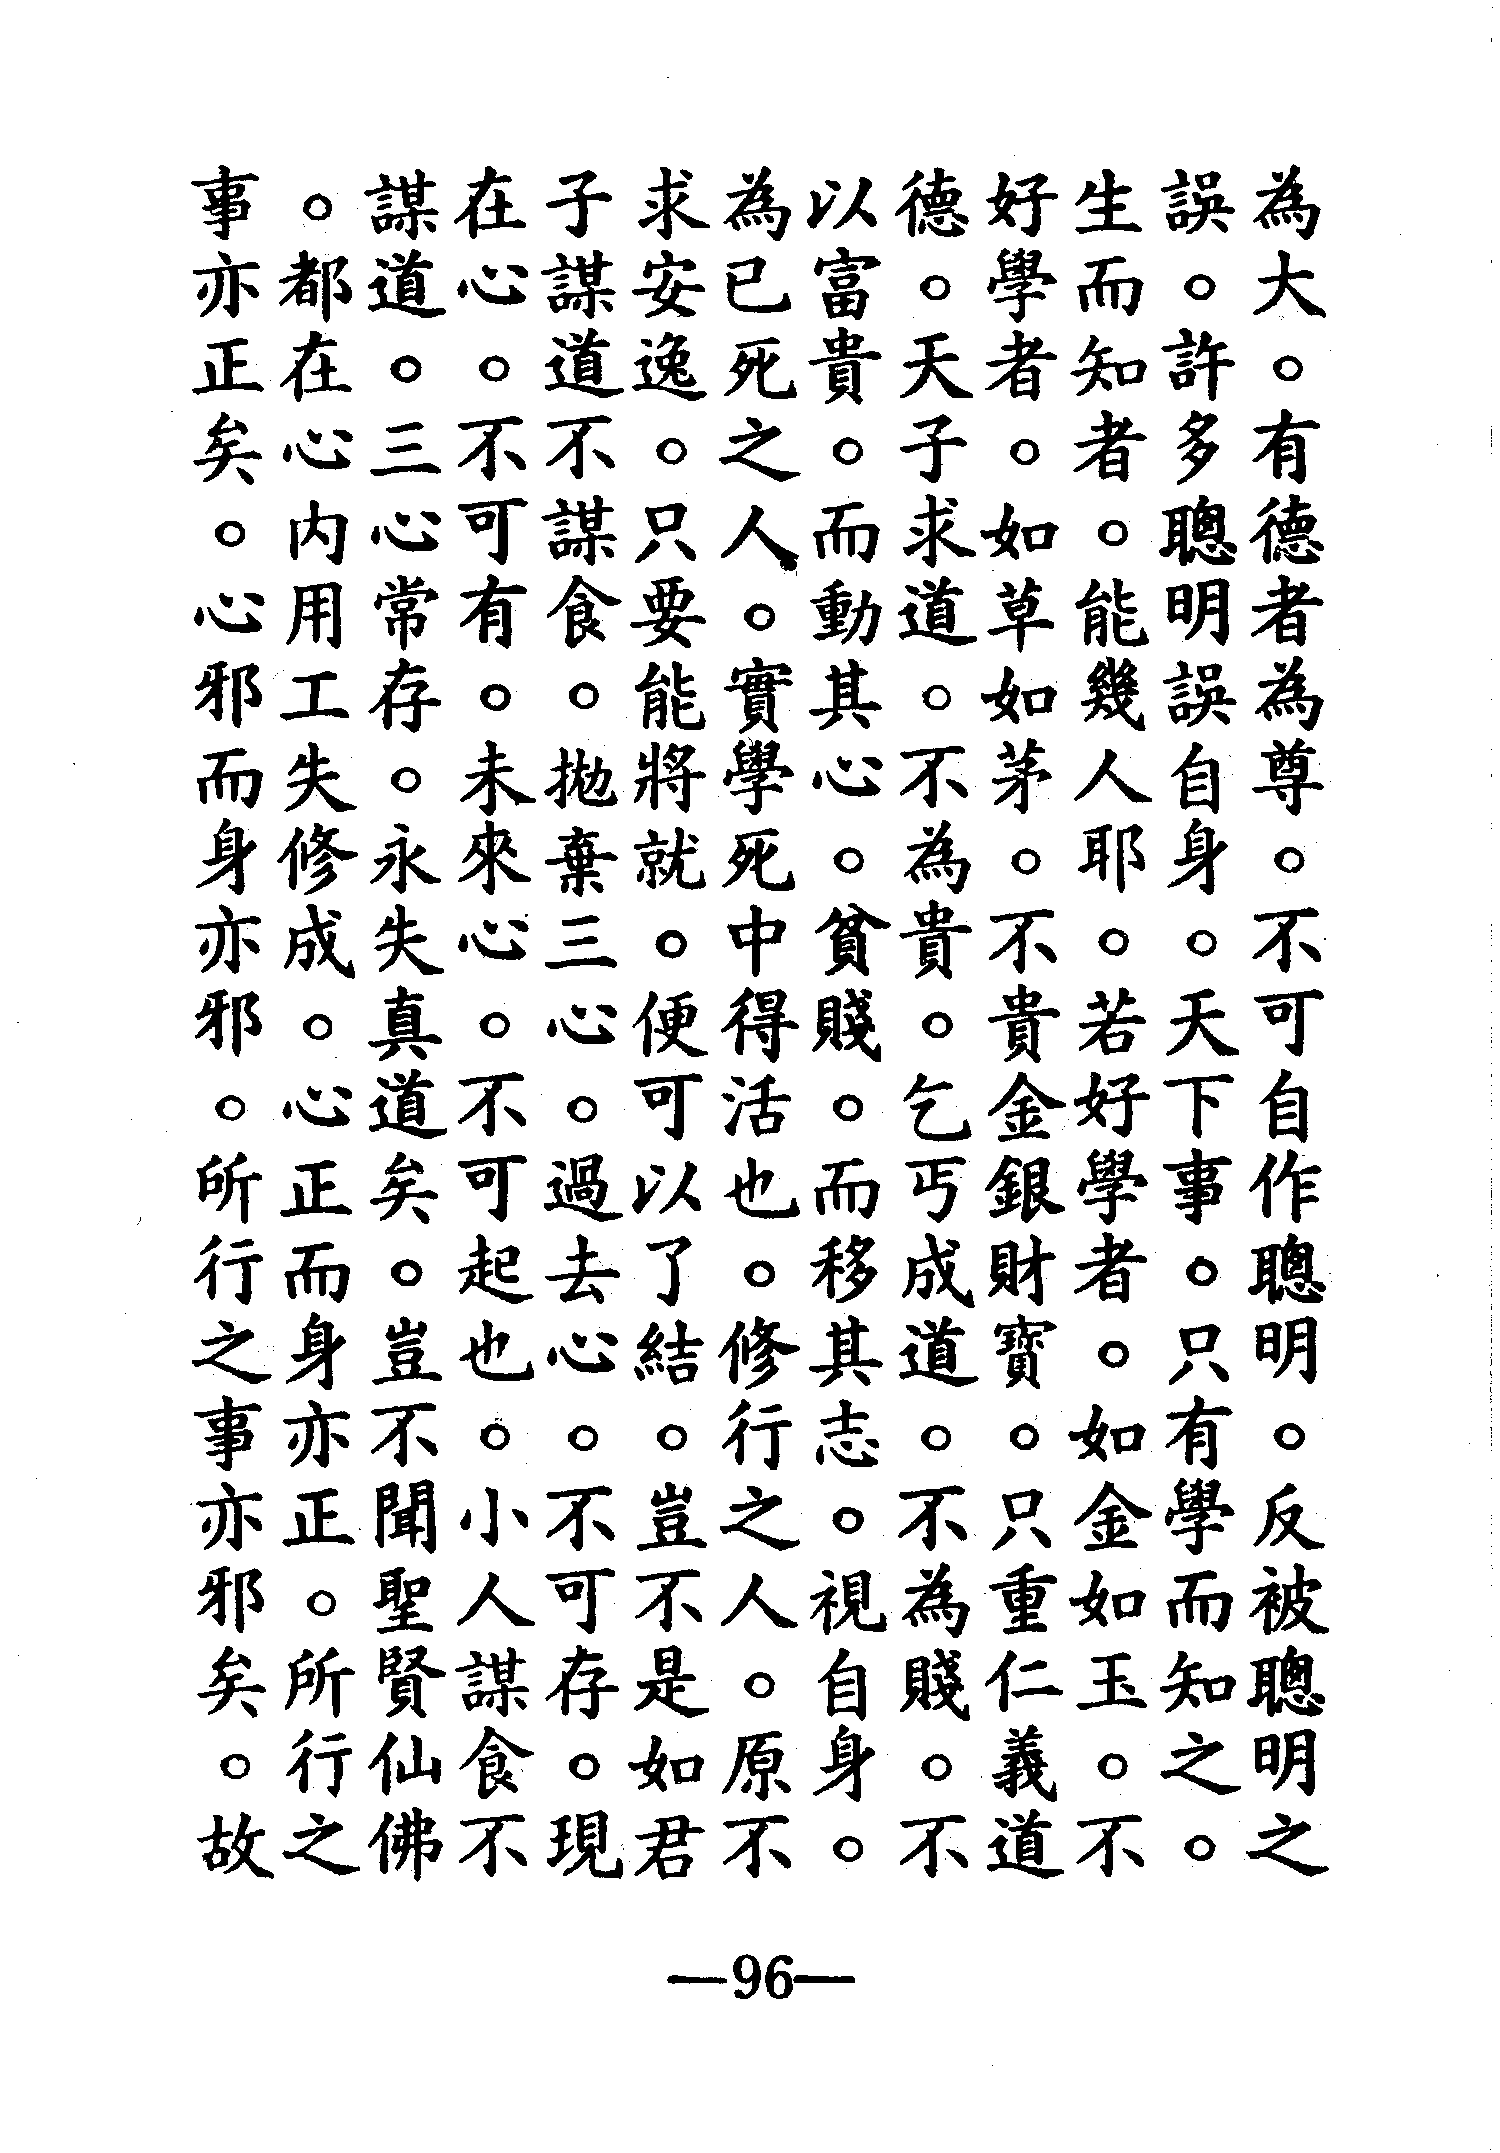 為大。有德者為尊。不可自作聰明。反被聰明之
誤。許多聰明誤自身。天下事。只有學而知之。
生而知者。能幾人耶。若好學者。如金如玉。不
好學者。如草如茅。不貴金銀財寶。只重仁義道
德。天子求道。不為貴。乞丐成道。不為賤。不
以富貴。而動其心。貧賤。而移其志。視自身。
為已死之人。實學死中得活也。修行之人。原不
求安逸。只要能將就。便可以了結。豈不是如君
子謀道不謀食。拋棄三心。過去心。不可存。現
在心。不可有。未來心。不可起也。小人謀食不
謀道。三心常存。永失真道矣。豈不聞聖賢仙佛
。都在心內用工夫修成。心正而身亦正。所行之
事亦正矣。心邪而身亦邪。所行之事亦邪矣。故
—96—